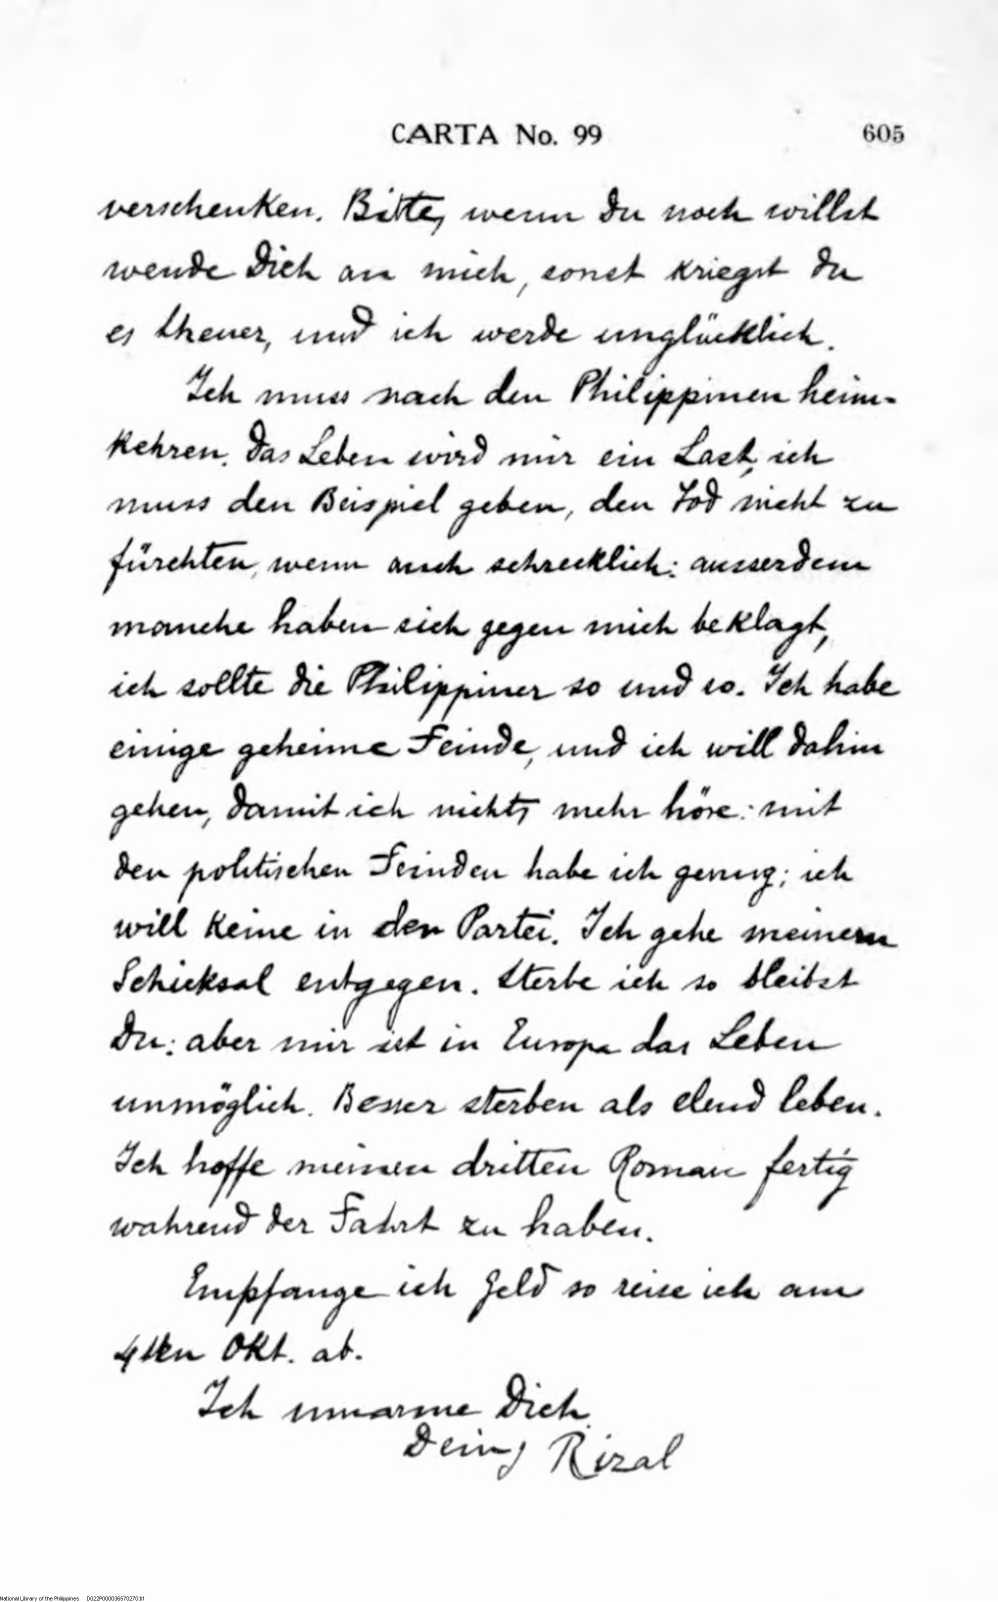 CARTA No. 99 605
verschenken. Bitte, wenn Du noch willst
wende Dich an mich, sonst kriegst Du
es theuer, und ich werde unglücklich.
Ich muss nach den Philippinen heim-
kehren. Das Leben wird mir ein Last, ich
muss den Beispiel geben, den Tod nicht zu
fürchten, wenn auch schrecklich: ausserdem
manche haben sich gegen mich beklagt,
ich sollte die Philippiner so und so. Ich habe
einige geheime Feinde, und ich will dahin
gehen, damit ich nichts mehr höre: mit
den politischen Feinden habe ich genug; ich
will keine in den Partei. Ich gehe meinem
Schicksal entgegen. Sterbe ich so bleibst
Du: aber mir ist in Europa das Leben
unmöglich. Besser sterben als elend leben.
Ich hoffe meinen dritten Roman fertig
wahrend der Fahrt zu haben.
Empfange ich Geld so reise ich am
4ten Okt. ab.
Ich umarme Dich
Dein Rizal
National Library of the Philippines